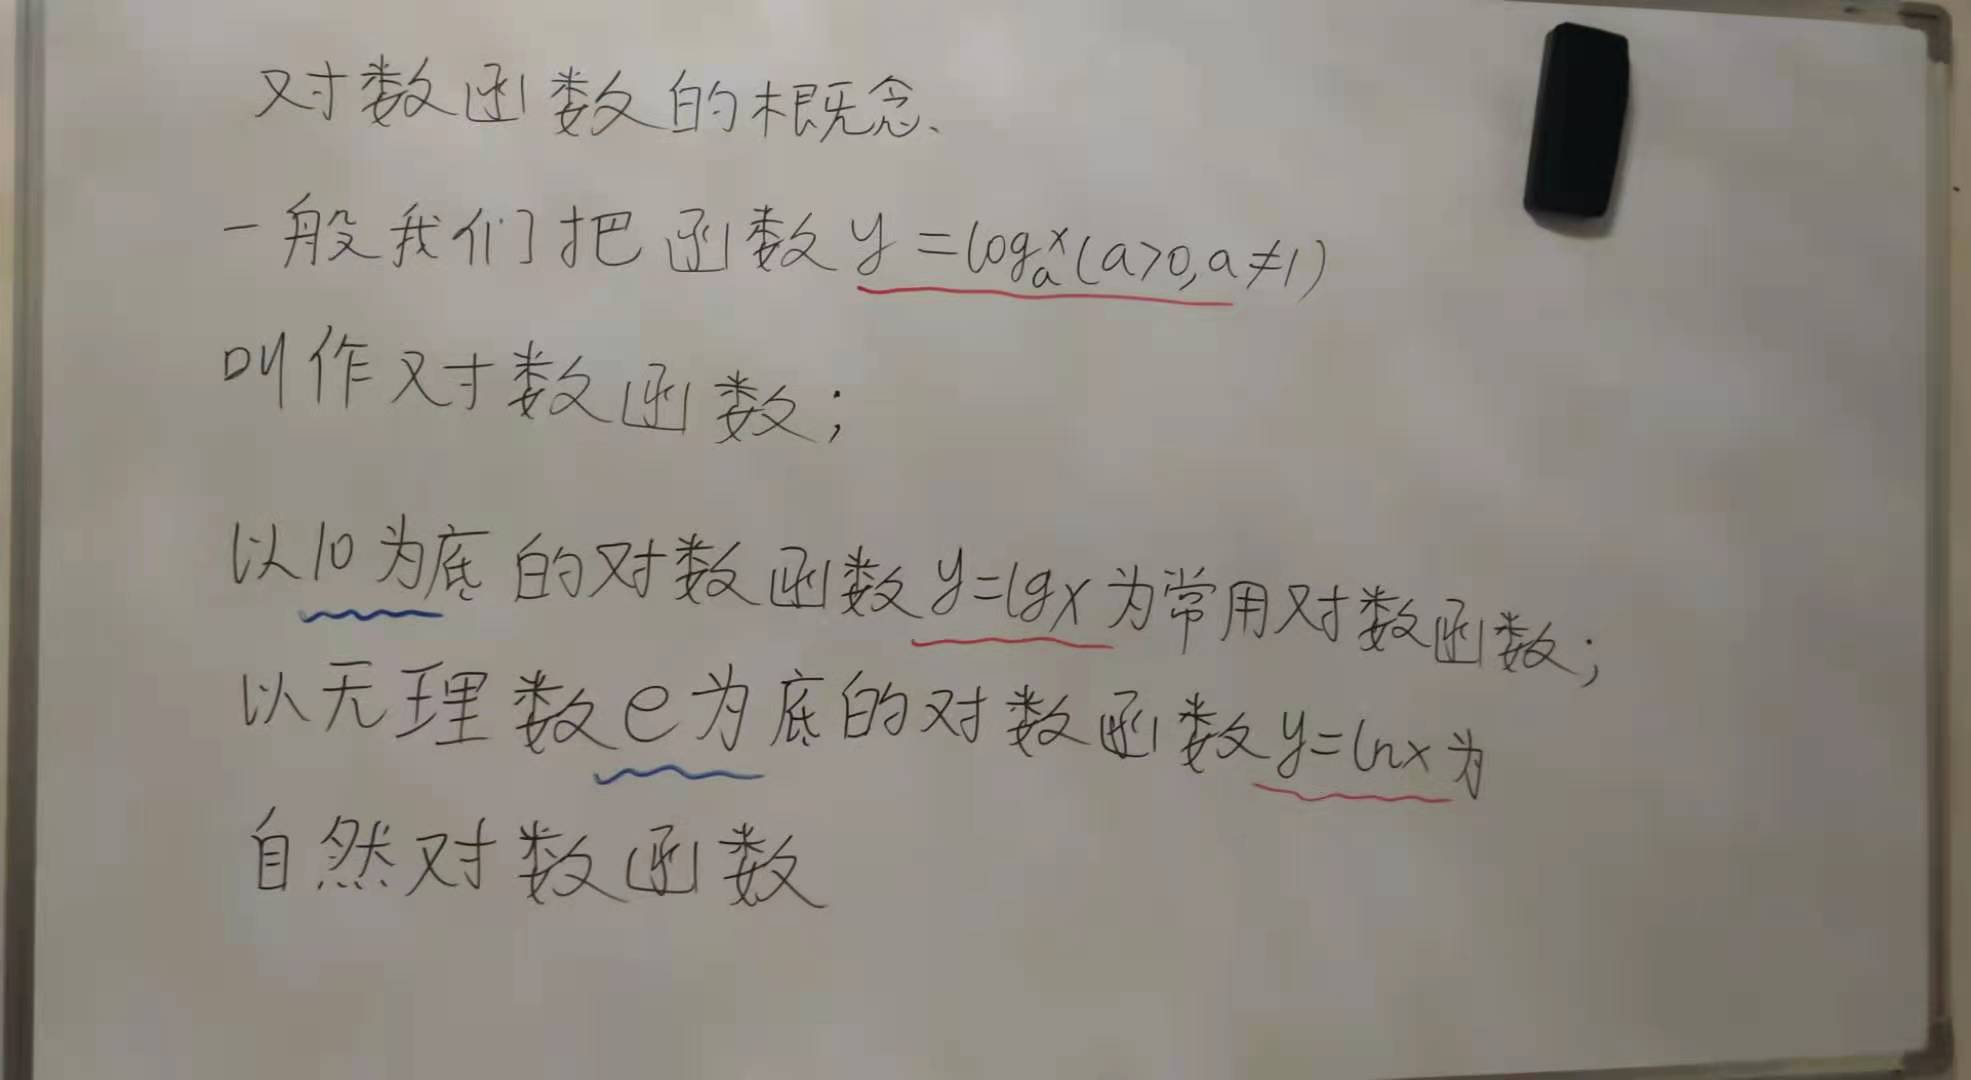 对数函数的概念、
一般我们把函数y=logₐx(a>0,a≠1)
叫作对数函数;
以10为底的对数函数y=lgx为常用对数函数;
以无理数e为底的对数函数y=lnx为
自然对数函数